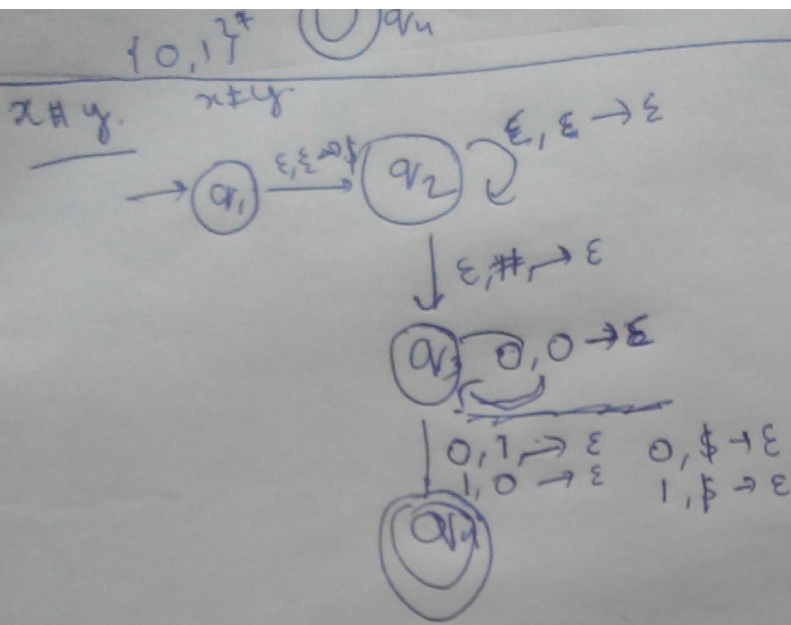 {0,1}* q4
x#y. x≠y
q1 ε,ε→$ q2 ε,ε→ε
ε,#,→ε
q3 0,0→ε
0,1,→ε 0,$→ε
1,0→ε 1,$→ε
q4